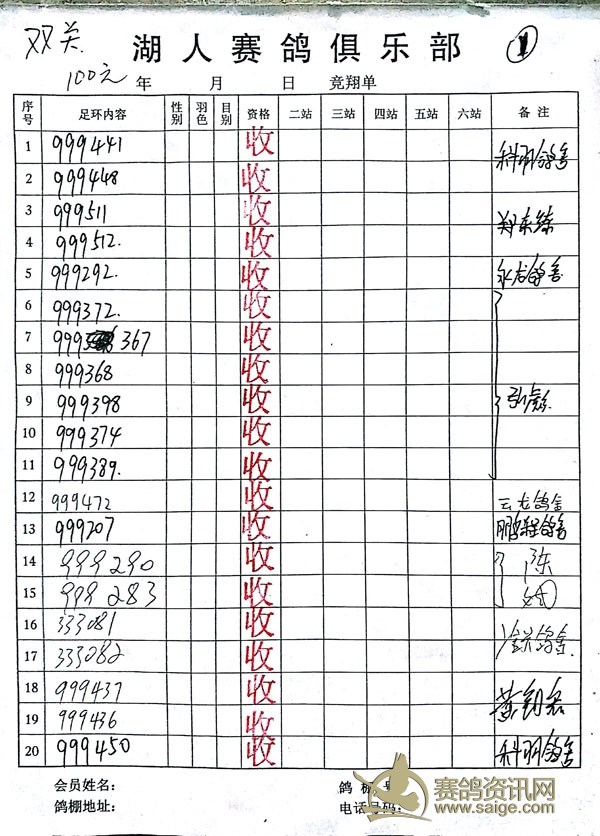 双关 湖人赛鸽俱乐部 1
100元 年 月 日 竞翔单
序号 足环内容 性别 羽色 目别 资格 二站 三站 四站 五站 六站 备注
1 999441 收 科羽鸽舍
2 999448 收
3 999511 收 郑东
4 999512. 收
5 999292. 收 永龙鸽舍
6 999372. 收
7 999 367 收
8 999368 收
9 999398 收
10 999374 收
11 999389. 收
12 999472 收 云龙鸽舍
13 999207 收 鹏程鸽舍
14 999290 收 陈
15 999283 收
16 333081 收 鸽舍
17 333082 收
18 999437 收 黄
19 999436 收
20 999450 收 科羽鸽舍
会员姓名： 鸽棚号
鸽棚地址： 电话号码：
赛鸽资讯网
www.saige.com